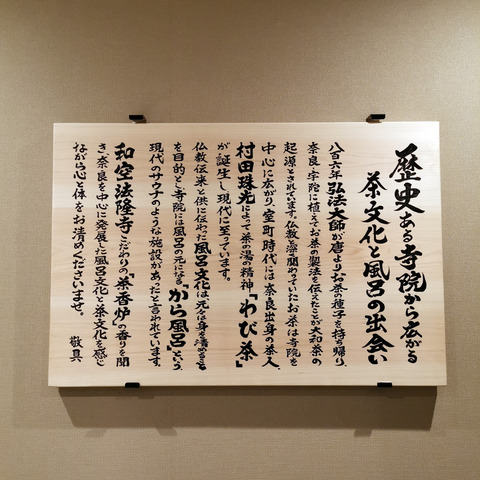 歴史ある寺院から広がる
茶文化と風呂の出会い
八百六年弘法大師が唐よりお茶の種子を持ち帰り、
奈良・宇陀に植えてお茶の製法を伝えたことが大和茶の
起源とされています。仏教と深く関わっていたお茶は寺院を
中心に広がり、室町時代には奈良出身の茶人、
村田珠光によって茶の湯の精神「わび茶」
が誕生し、現代に至っています。
仏教伝来と供に伝わった風呂文化は、元々は身を清めること
を目的とし寺院には風呂の元になる「から風呂」という、
現代のサウナのような施設があったと言われています。
和空法隆寺こだわりの「茶香炉」の香りを聞
き、奈良を中心に発展した風呂文化と茶文化を感じ
ながら心と体をお清めくださいませ。
敬具